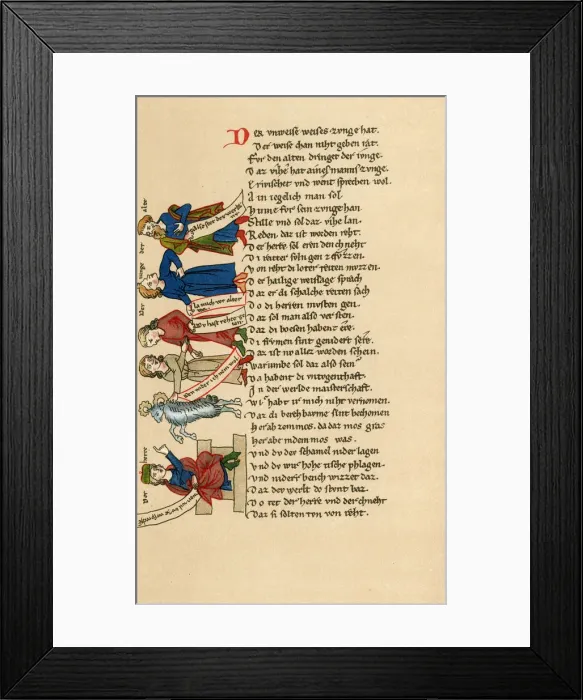 Der vnweise weises zvnge hat.
Der weise chan niht geben rat.
Fvr den alten dringet der ivnge.
Daz vihe hat aines manns zvnge.
Ervrischet vnd went sprechen wol.
Ain iegelich man sol
Hinne fvr sein zvnge han
Stille vnd sol daz vihe lan.
Reden daz ist worden reht.
Der herre sol eren den chneht
Di ritter svln gen z fvzzen.
Von reht di loter reiten mvzzen.
Der heilige weissage sprach
Daz er di schalche reiten sach
Do di herren mvsten gen.
Daz sol man also versten.
Daz di boesen habent ere.
Di frvmen sint genidert sere.
Daz ist nv allez worden schein.
Warumbe sol daz also sein
Da habent di
In der werlde maisterschaft.
Wi habt ir mich niht vernomen.
Daz di berch bavme sint bechomen
Her ab zem mos. da daz mos gras
Her abe in dem mos was.
Vnd do der schamel nider lagen
Vnd do wir hohe tische phlagen.
Vnd nidere bench wizzet daz.
Daz der werlt do stvnt baz.
Do tet der herre vnd der chneht
Daz si solten tvn von reht.
der alte
Der ivnge
Der herre